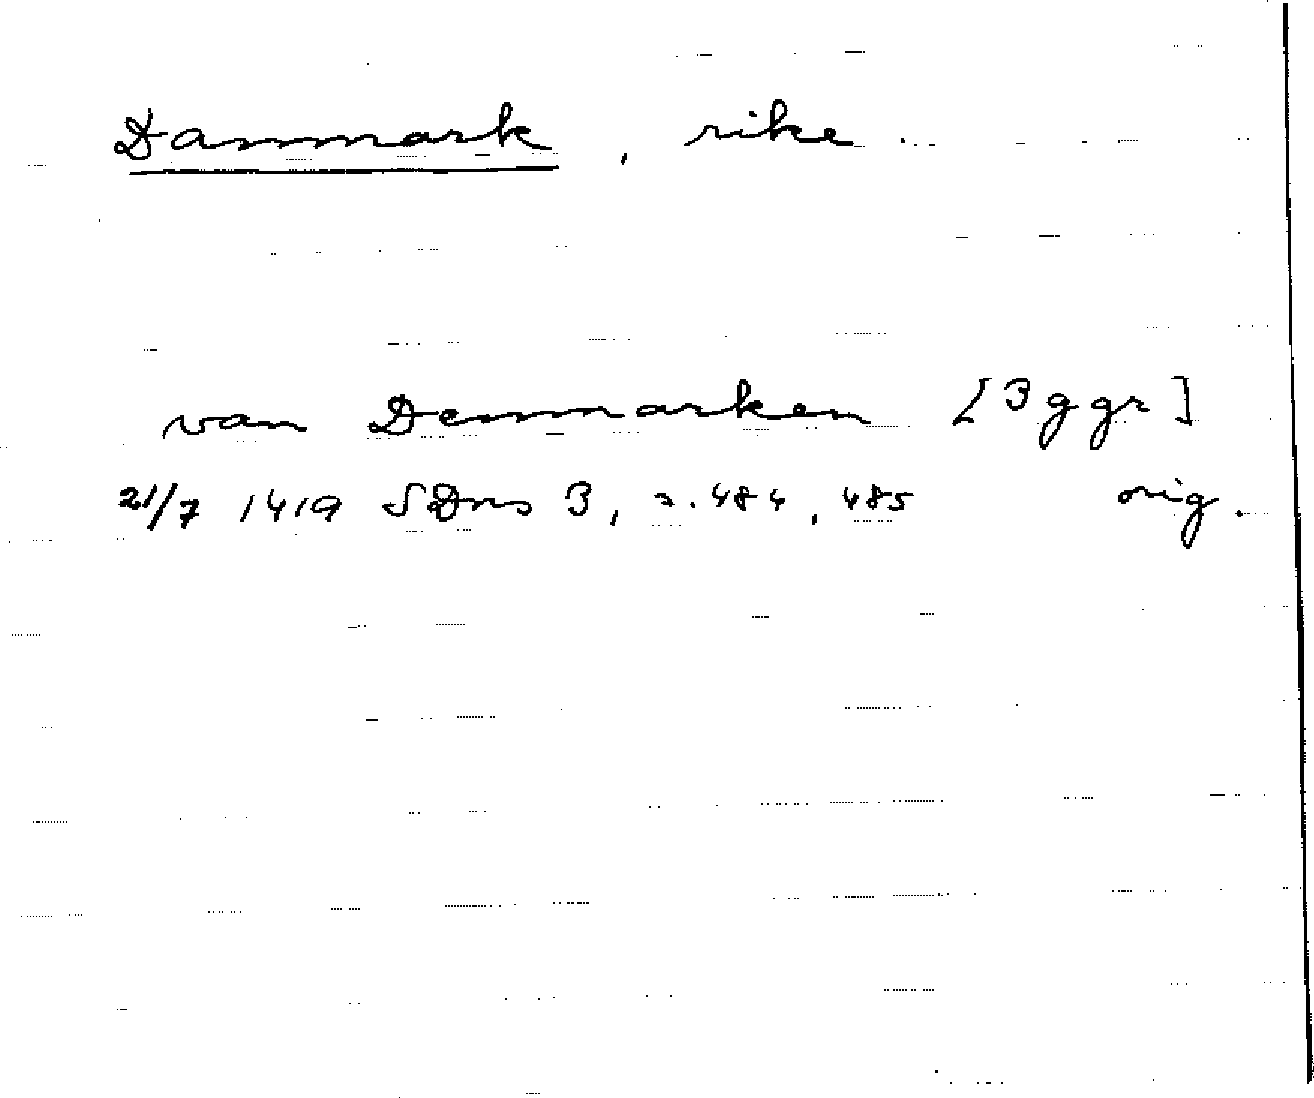 Danmark, rike.
van Denmarken [3 ggr]
21/7 1419 SDns 3, s. 484, 485 orig.